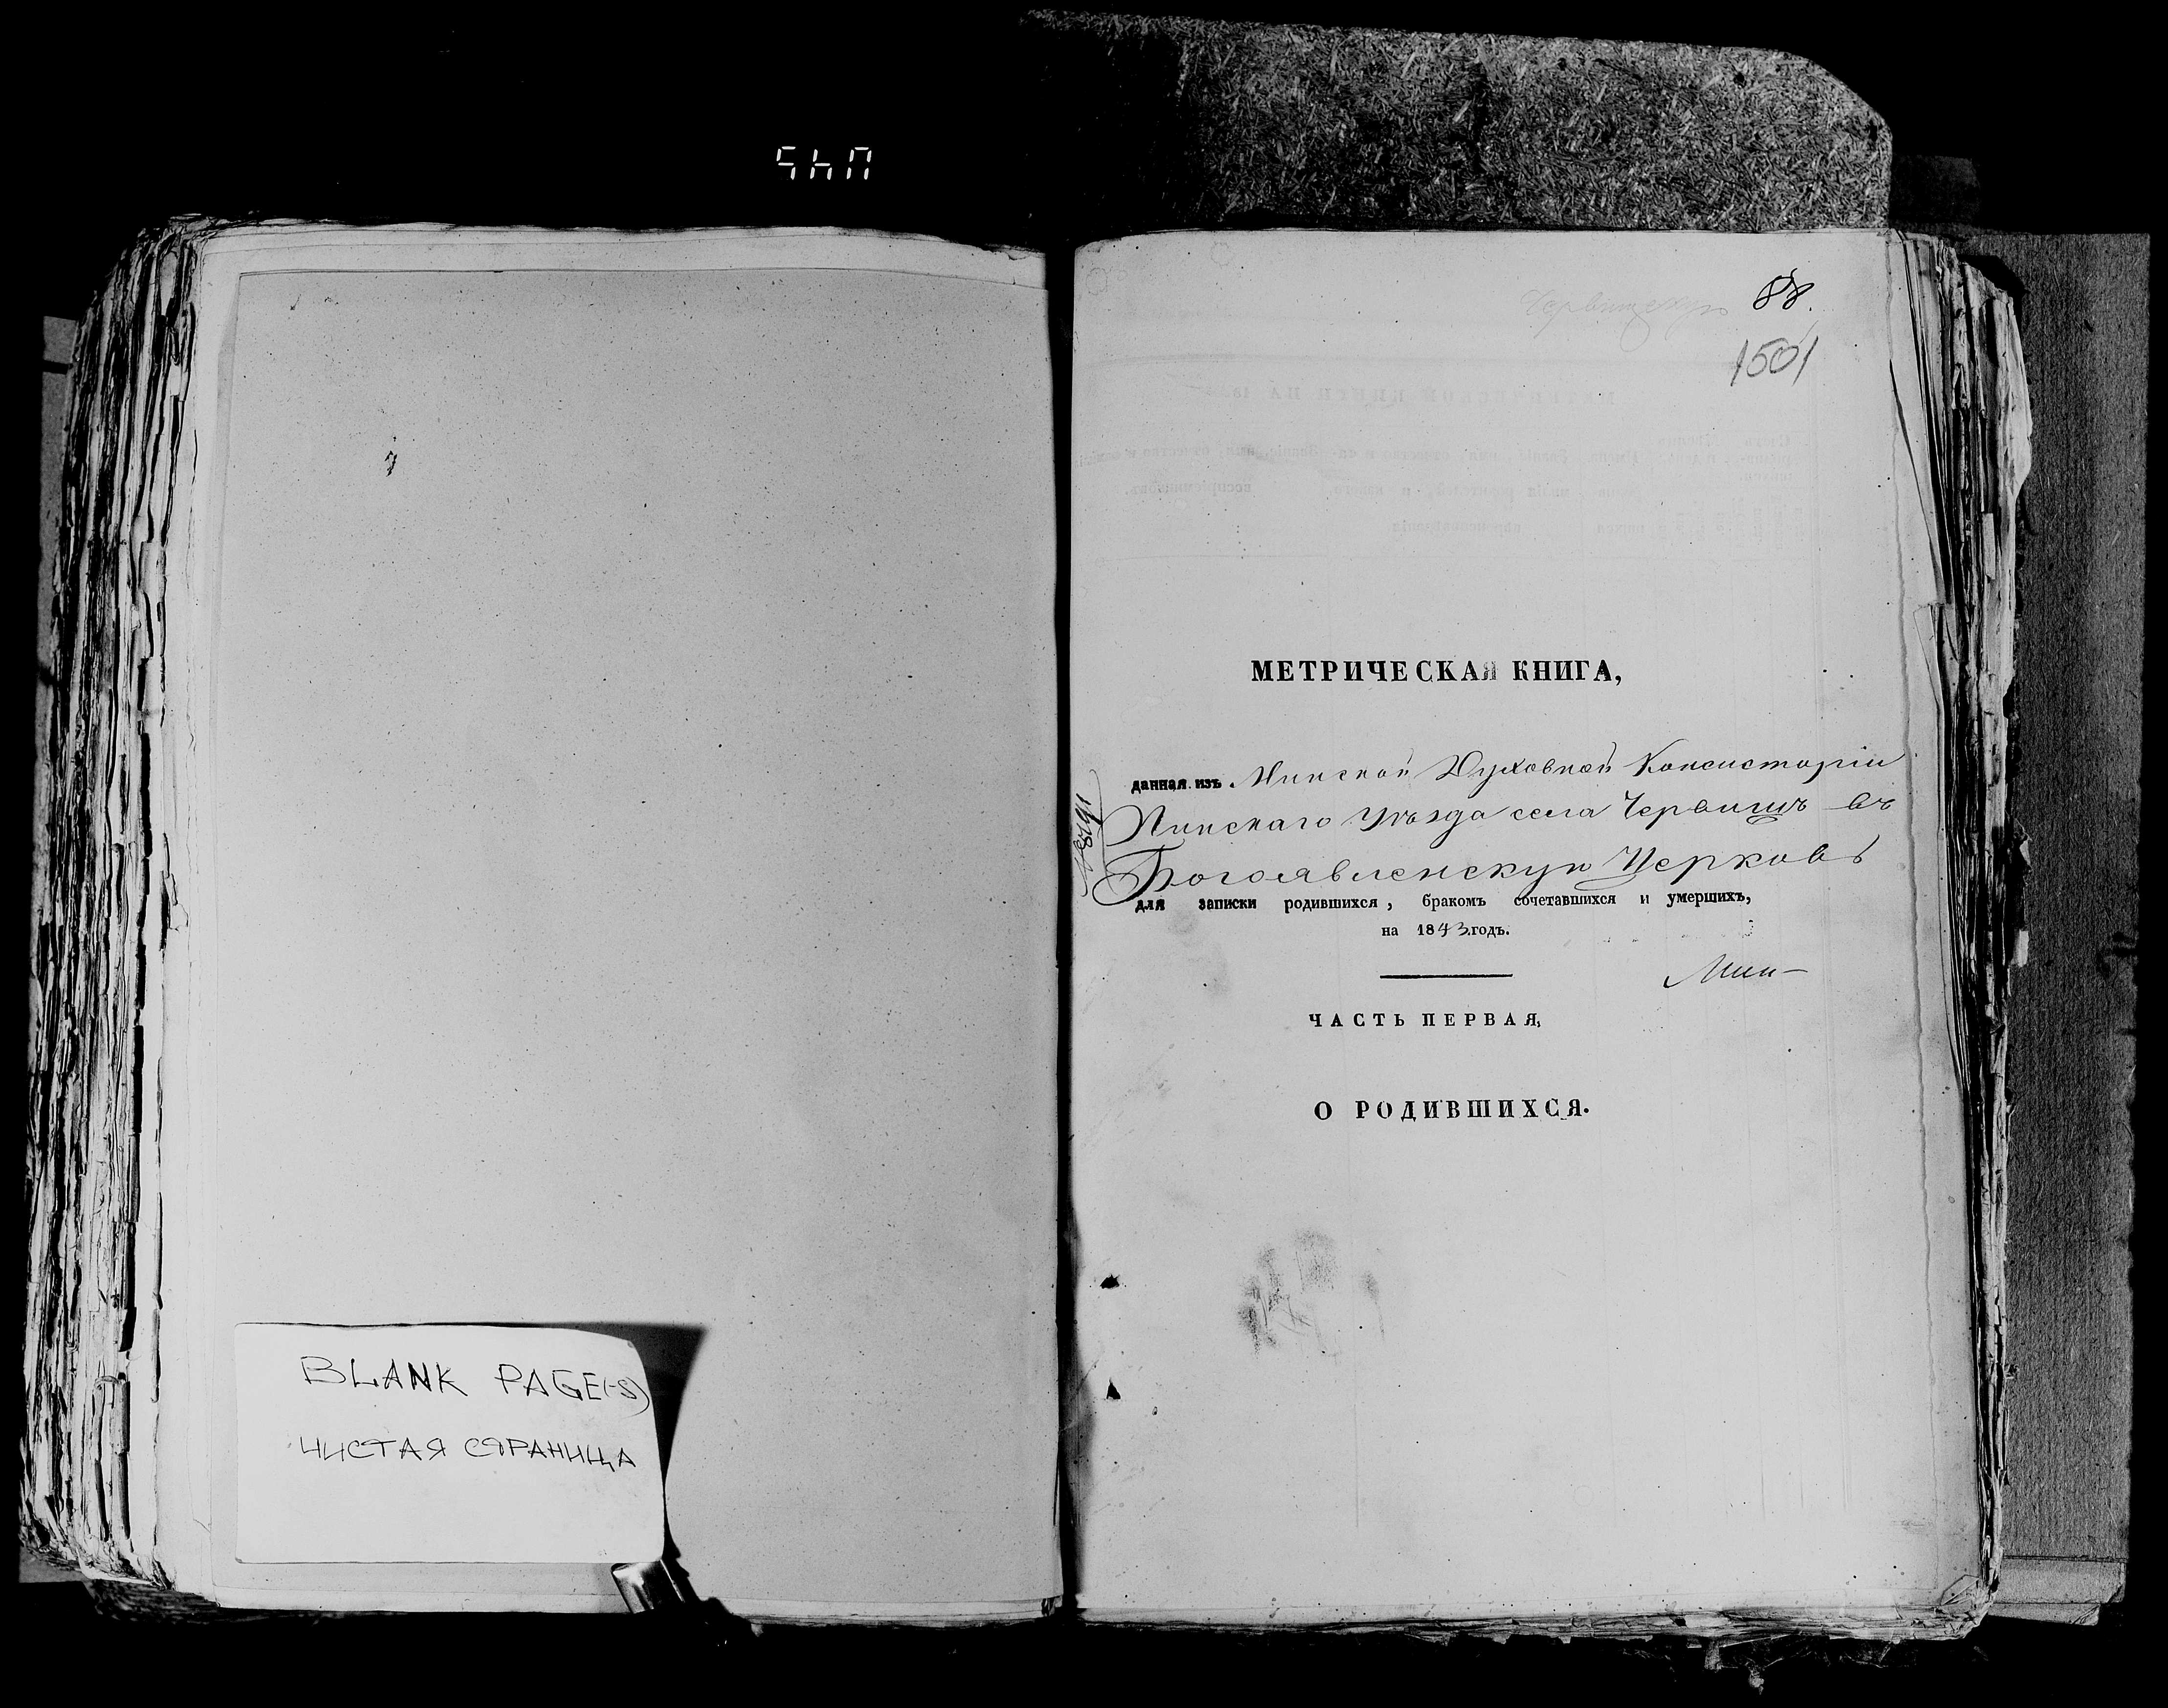 BLANK PAGE(-S)
ЧИСТАЯ СТРАНИЦА
88.
1501
МЕТРИЧЕСКАЯ КНИГА,
данная изъ Минской Духовной Консисторіи
Пинскаго Уѣзда села Червищъ въ
Богоявленскую Церковь
для записки родившихся, бракомъ сочетавшихся и умершихъ,
на 1843 годъ.
Мин-
ЧАСТЬ ПЕРВАЯ,
О РОДИВШИХСЯ.